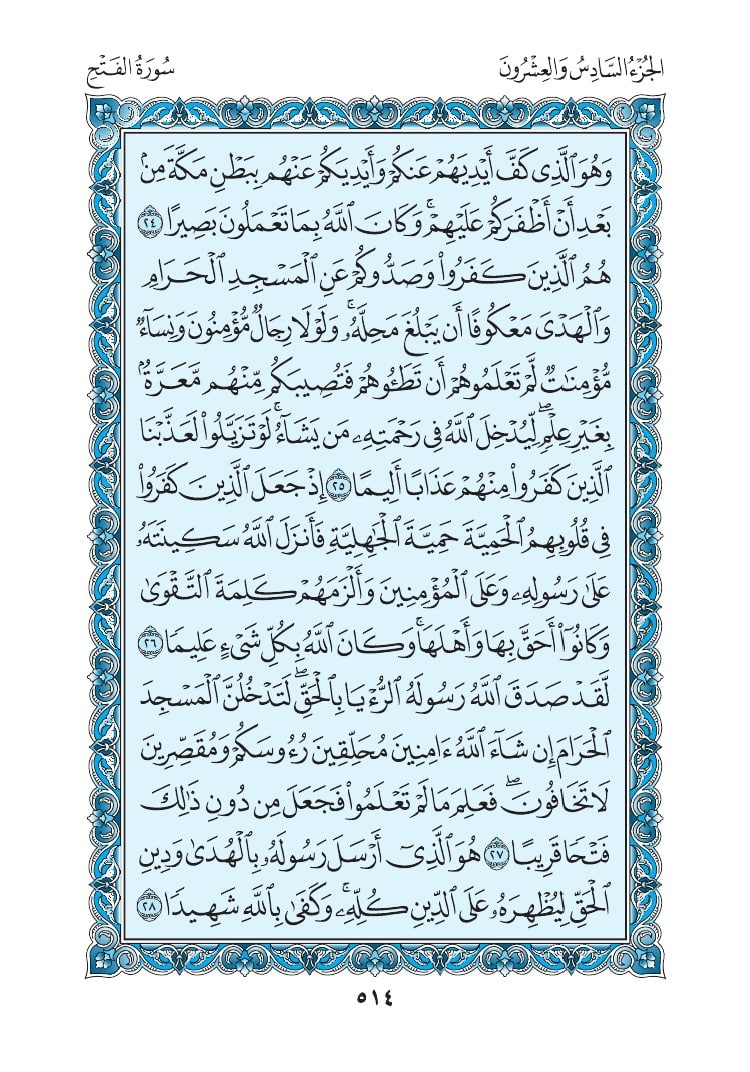 الجُزْءُ السَّادِسُ وَالعِشْرُونَ
سُورَةُ الفَتْحِ
وَهُوَ ٱلَّذِى كَفَّ أَيْدِيَهُمْ عَنكُمْ وَأَيْدِيَكُمْ عَنْهُم بِبَطْنِ مَكَّةَ مِنۢ
بَعْدِ أَنْ أَظْفَرَكُمْ عَلَيْهِمْ ۚ وَكَانَ ٱللَّهُ بِمَا تَعْمَلُونَ بَصِيرًا ٢٤
هُمُ ٱلَّذِينَ كَفَرُوا۟ وَصَدُّوكُمْ عَنِ ٱلْمَسْجِدِ ٱلْحَرَامِ
وَٱلْهَدْىَ مَعْكُوفًا أَن يَبْلُغَ مَحِلَّهُۥ ۚ وَلَوْلَا رِجَالٌ مُّؤْمِنُونَ وَنِسَآءٌ
مُّؤْمِنَـٰتٌ لَّمْ تَعْلَمُوهُمْ أَن تَطَـُٔوهُمْ فَتُصِيبَكُم مِّنْهُم مَّعَرَّةٌۢ
بِغَيْرِ عِلْمٍ ۖ لِّيُدْخِلَ ٱللَّهُ فِى رَحْمَتِهِۦ مَن يَشَآءُ ۚ لَوْ تَزَيَّلُوا۟ لَعَذَّبْنَا
ٱلَّذِينَ كَفَرُوا۟ مِنْهُمْ عَذَابًا أَلِيمًا ٢٥ إِذْ جَعَلَ ٱلَّذِينَ كَفَرُوا۟
فِى قُلُوبِهِمُ ٱلْحَمِيَّةَ حَمِيَّةَ ٱلْجَـٰهِلِيَّةِ فَأَنزَلَ ٱللَّهُ سَكِينَتَهُۥ
عَلَىٰ رَسُولِهِۦ وَعَلَى ٱلْمُؤْمِنِينَ وَأَلْزَمَهُمْ كَلِمَةَ ٱلتَّقْوَىٰ
وَكَانُوٓا۟ أَحَقَّ بِهَا وَأَهْلَهَا ۚ وَكَانَ ٱللَّهُ بِكُلِّ شَىْءٍ عَلِيمًا ٢٦
لَّقَدْ صَدَقَ ٱللَّهُ رَسُولَهُ ٱلرُّءْيَا بِٱلْحَقِّ ۖ لَتَدْخُلُنَّ ٱلْمَسْجِدَ
ٱلْحَرَامَ إِن شَآءَ ٱللَّهُ ءَامِنِينَ مُحَلِّقِينَ رُءُوسَكُمْ وَمُقَصِّرِينَ
لَا تَخَافُونَ ۖ فَعَلِمَ مَا لَمْ تَعْلَمُوا۟ فَجَعَلَ مِن دُونِ ذَٰلِكَ
فَتْحًا قَرِيبًا ٢٧ هُوَ ٱلَّذِىٓ أَرْسَلَ رَسُولَهُۥ بِٱلْهُدَىٰ وَدِينِ
ٱلْحَقِّ لِيُظْهِرَهُۥ عَلَى ٱلدِّينِ كُلِّهِۦ ۚ وَكَفَىٰ بِٱللَّهِ شَهِيدًا ٢٨
٥١٤